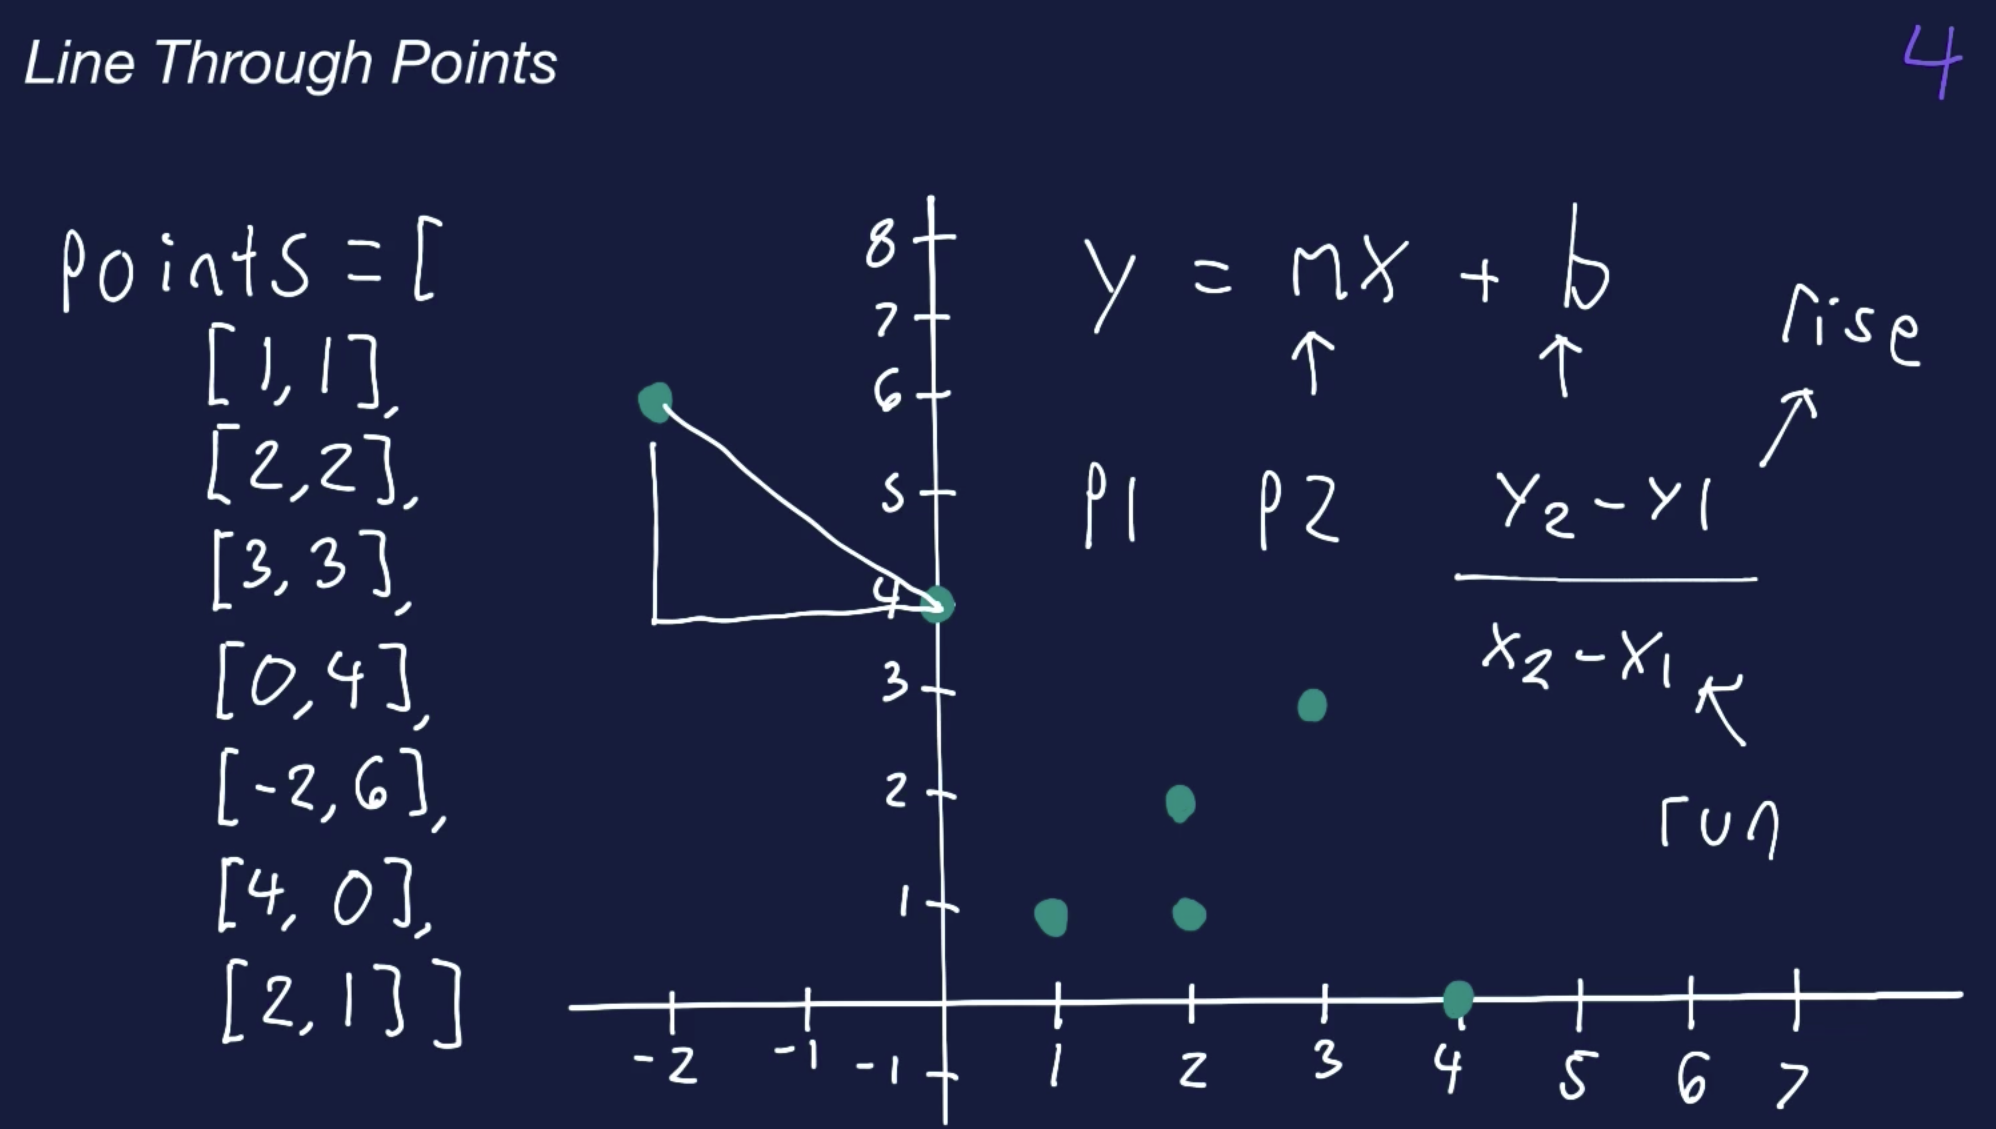 Line Through Points
4
points = [
[1,1],
[2,2],
[3,3],
[0,4],
[-2,6],
[4, 0],
[2,1]]
8
7
6
5
4
3
2
1
-1
-2 -1 1 2 3 4 5 6 7
y = mx + b
↑ ↑
rise
P1 P2
Y2 - Y1
X2 - X1
run